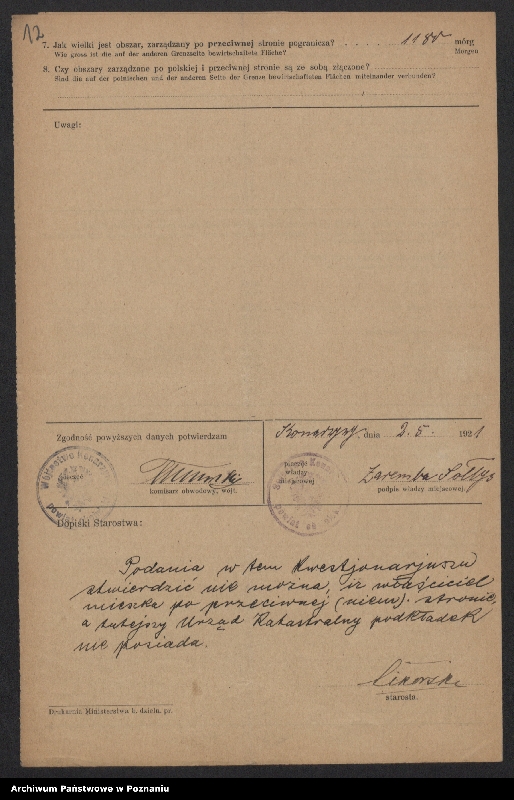 12
7. Jak wielki jest obszar, zarządzany po przeciwnej stronie pogranicza? . . . . . . 1180 mórg
Wie gross ist die auf der anderen Grenzseite bewirtschaftete Fläche? Morgen
8. Czy obszary zarządzane po polskiej i przeciwnej stronie są ze sobą złączone?
Sind die auf der polnischen und der anderen Seite der Grenze bewirtschafteten Flächen miteinander verbunden?
Uwagi:
Zgodność powyższych danych potwierdzam
komisarz obwodowy, wójt.
dnia 2. 5. 1921
pieczęć
władzy
miejscowej
Zaremba Sołtys
podpis władzy miejscowej.
Dopiski Starostwa:
Podania w tem kwestjonarjuszu
stwierdzić nie można, iż właściciel
mieszka po przeciwnej (niem). stronie,
a tutejszy Urząd Katastralny podkładek
nie posiada.
starosta.
Drukarnia Ministerstwa b. dzieln. pr.
Archiwum Państwowe w Poznaniu